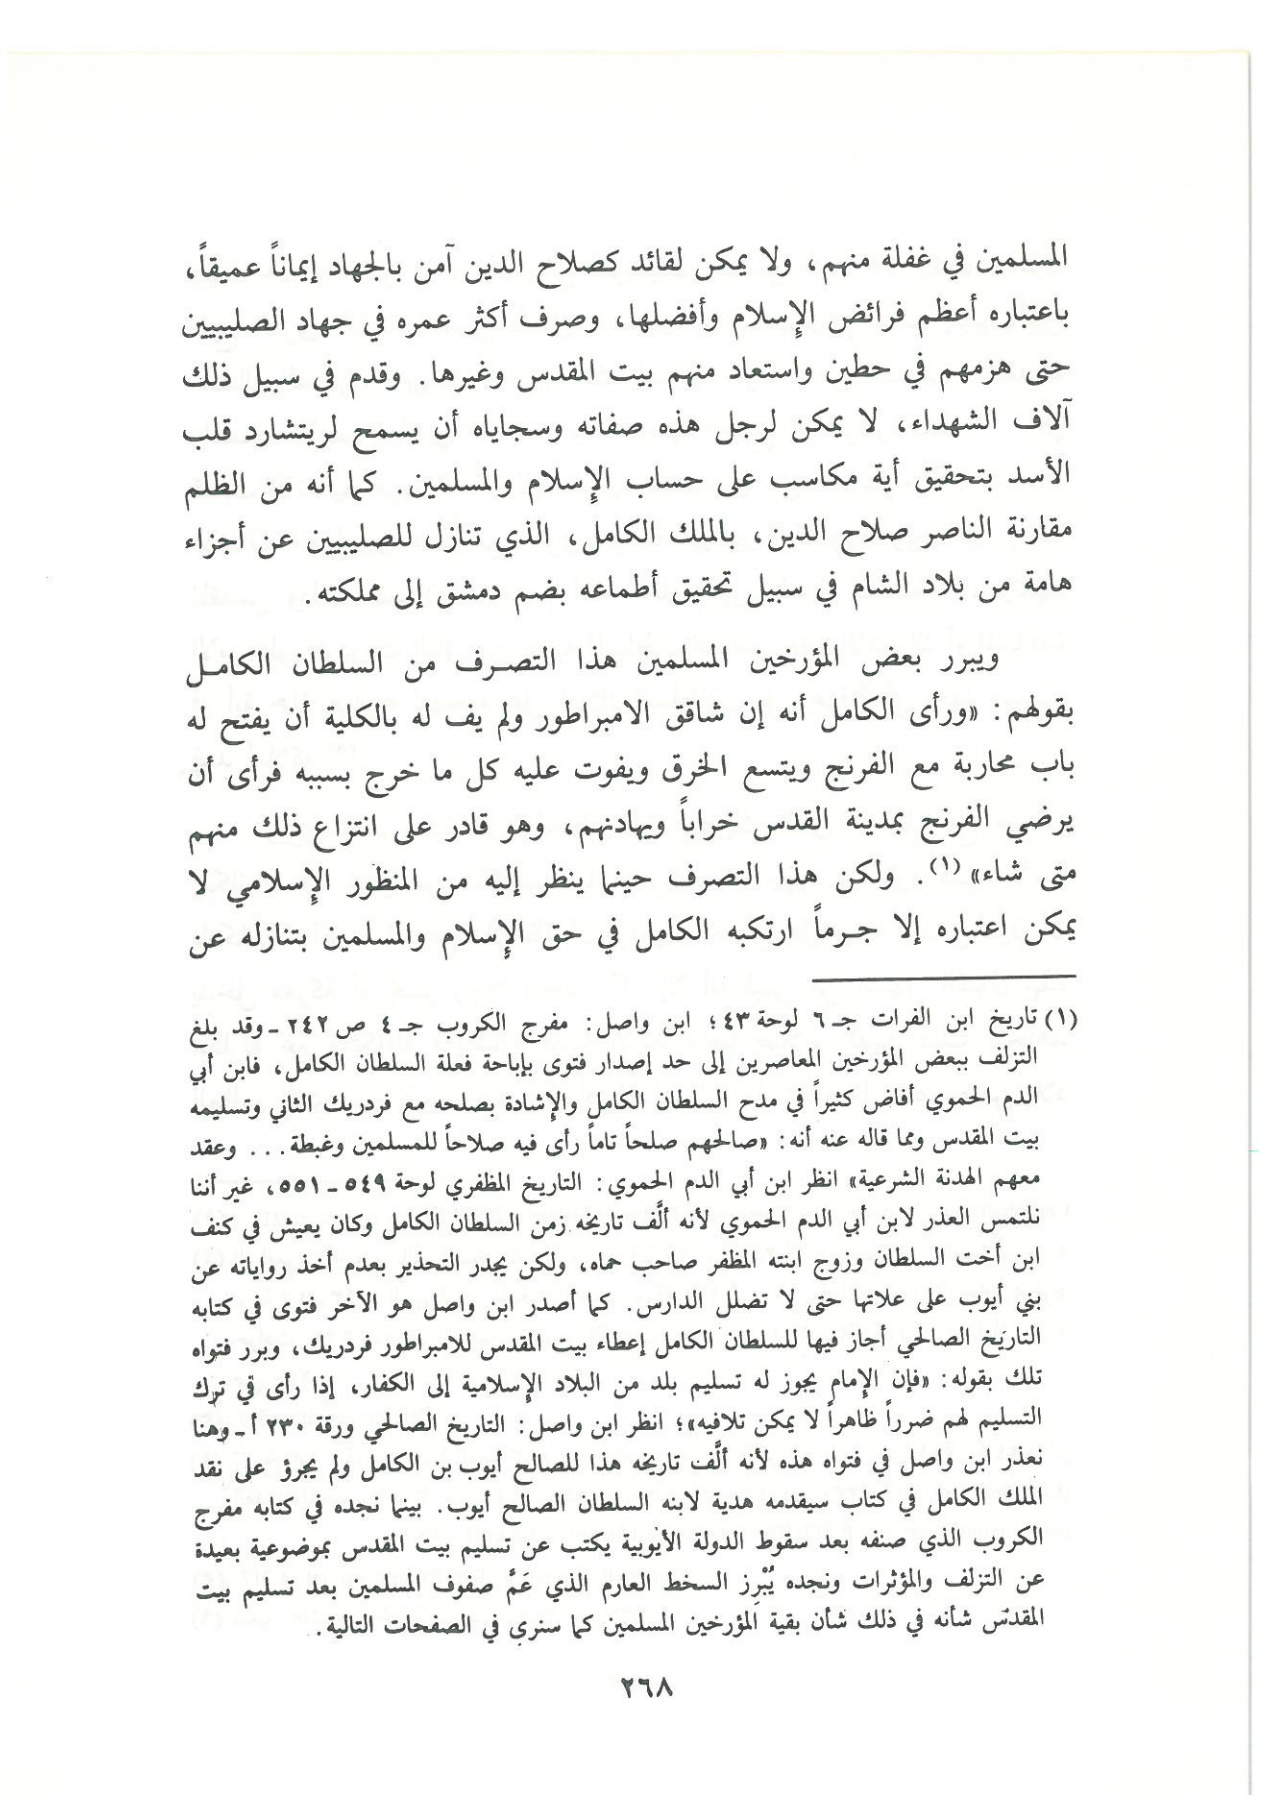 المسلمين في غفلة منهم، ولا يمكن لقائد كصلاح الدين آمن بالجهاد إيماناً عميقاً،
باعتباره أعظم فرائض الإسلام وأفضلها، وصرف أكثر عمره في جهاد الصليبيين
حتى هزمهم في حطين واستعاد منهم بيت المقدس وغيرها. وقدم في سبيل ذلك
آلاف الشهداء، لا يمكن لرجل هذه صفاته وسجاياه أن يسمح لريتشارد قلب
الأسد بتحقيق أية مكاسب على حساب الإسلام والمسلمين. كما أنه من الظلم
مقارنة الناصر صلاح الدين، بالملك الكامل، الذي تنازل للصليبيين عن أجزاء
هامة من بلاد الشام في سبيل تحقيق أطماعه بضم دمشق إلى مملكته.
ويبرر بعض المؤرخين المسلمين هذا التصرف من السلطان الكامل
بقولهم: «ورأى الكامل أنه إن شاقق الامبراطور ولم يف له بالكلية أن يفتح له
باب محاربة مع الفرنج ويتسع الخرق ويفوت عليه كل ما خرج بسببه فرأى أن
يرضي الفرنج بمدينة القدس خراباً ويهادنهم، وهو قادر على انتزاع ذلك منهم
متى شاء»(١). ولكن هذا التصرف حينما ينظر إليه من المنظور الإسلامي لا
يمكن اعتباره إلا جرماً ارتكبه الكامل في حق الإسلام والمسلمين بتنازله عن
(١) تاريخ ابن الفرات جـ ٦ لوحة ٤٣؛ ابن واصل: مفرج الكروب جـ ٤ ص ٢٤٢ ـ وقد بلغ
التزلف ببعض المؤرخين المعاصرين إلى حد إصدار فتوى بإباحة فعلة السلطان الكامل، فابن أبي
الدم الحموي أفاض كثيراً في مدح السلطان الكامل والإشادة بصلحه مع فردريك الثاني وتسليمه
بيت المقدس ومما قاله عنه أنه: «صالحهم صلحاً تاماً رأى فيه صلاحاً للمسلمين وغبطة... وعقد
معهم الهدنة الشرعية» انظر ابن أبي الدم الحموي: التاريخ المظفري لوحة ٥٤٩ ـ ٥٥١، غير أننا
نلتمس العذر لابن أبي الدم الحموي لأنه ألَّف تاريخه زمن السلطان الكامل وكان يعيش في كنف
ابن أخت السلطان وزوج ابنته المظفر صاحب حماه، ولكن يجدر التحذير بعدم أخذ رواياته عن
بني أيوب على علاتها حتى لا تضلل الدارس. كما أصدر ابن واصل هو الآخر فتوى في كتابه
التاريخ الصالحي أجاز فيها للسلطان الكامل إعطاء بيت المقدس للامبراطور فردريك، وبرر فتواه
تلك بقوله: «فإن الإمام يجوز له تسليم بلد من البلاد الإسلامية إلى الكفار، إذا رأى في ترك
التسليم لهم ضرراً ظاهراً لا يمكن تلافيه»؛ انظر ابن واصل: التاريخ الصالحي ورقة ٢٣٠ أ ـ وهنا
نعذر ابن واصل في فتواه هذه لأنه ألَّف تاريخه هذا للصالح أيوب بن الكامل ولم يجرؤ على نقد
الملك الكامل في كتاب سيقدمه هدية لابنه السلطان الصالح أيوب. بينما نجده في كتابه مفرج
الكروب الذي صنفه بعد سقوط الدولة الأيوبية يكتب عن تسليم بيت المقدس بموضوعية بعيدة
عن التزلف والمؤثرات ونجده يُبْرِز السخط العارم الذي عَمَّ صفوف المسلمين بعد تسليم بيت
المقدس شأنه في ذلك شأن بقية المؤرخين المسلمين كما سنرى في الصفحات التالية.
٢٦٨